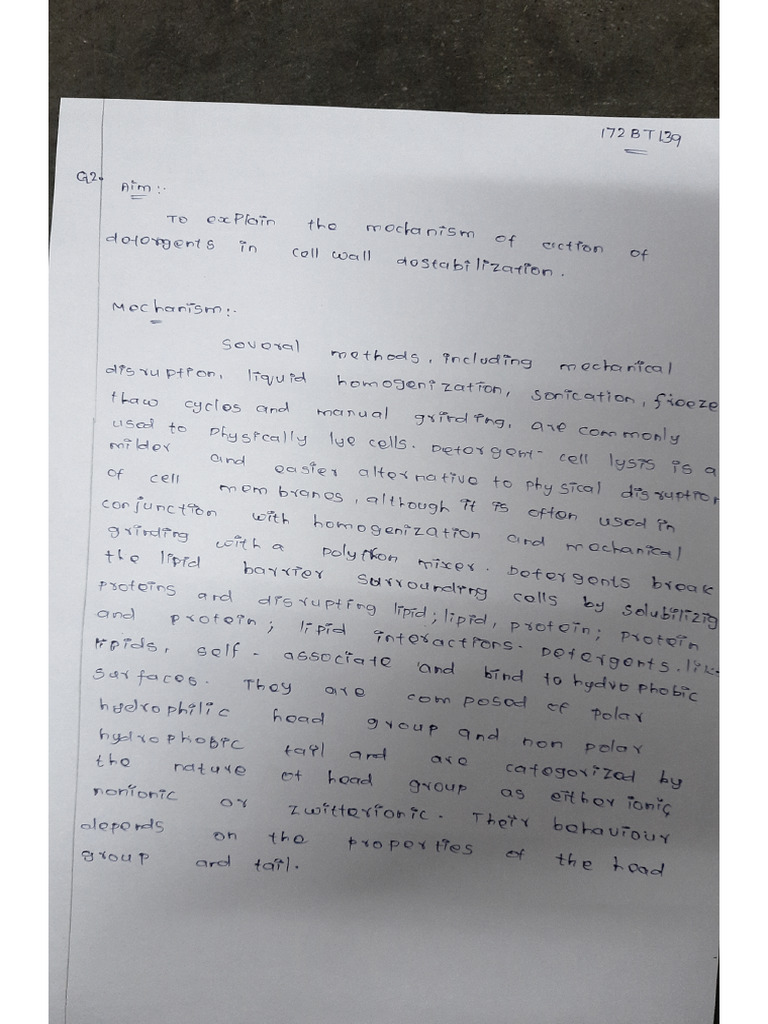 172BT139
Q2.
Aim:-
To explain the mechanism of action of
detergents in cell wall destabilization.
Mechanism:-
Several methods, including mechanical
disruption, liquid homogenization, sonication, freeze
thaw cycles and manual grinding, are commonly
used to physically lye cells. Detergent- cell lysis is a
milder and easier alternative to physical disruption
of cell membranes, although it is often used in
conjunction with homogenization and mechanical
grinding with a polytkon mixer. Detergents break
the lipid barrier surrounding cells by solubilizig
proteins and disrupting lipid; lipid, protein; protein
and protein; lipid interactions. Detergents, lik
lipids, self - associate and bind to hydrophobic
surfaces. They are composed of polar
hydrophilic head group and non polar
hydrophobic tail and are categorized by
the nature of head group as either ionic,
nonionic or zwitterionic. Their behaviour
depends on the properties of the head
group and tail.